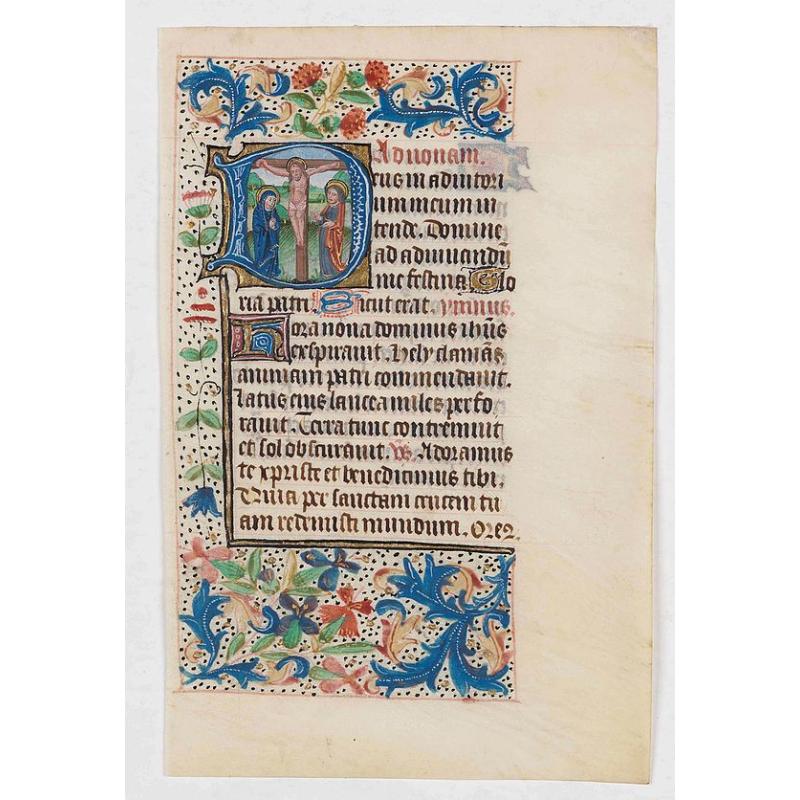 Ad nonam.
Deus in adiutori
um meum in
tende. Domine
ad adiuuandū
me festina. Glo
ria patri Sicut erat. ymnus.
Hora nona dominus ihūs
expirauit. Hely clamās
animam patri commendauit.
Latus eius lancea miles perfo
rauit. Terra tunc contremuit
et sol obscurauit. Vs Adoramus
te xpriste et benedicimus tibi.
Quia per sanctam crucem tu
am redemisti mundum. Orez.